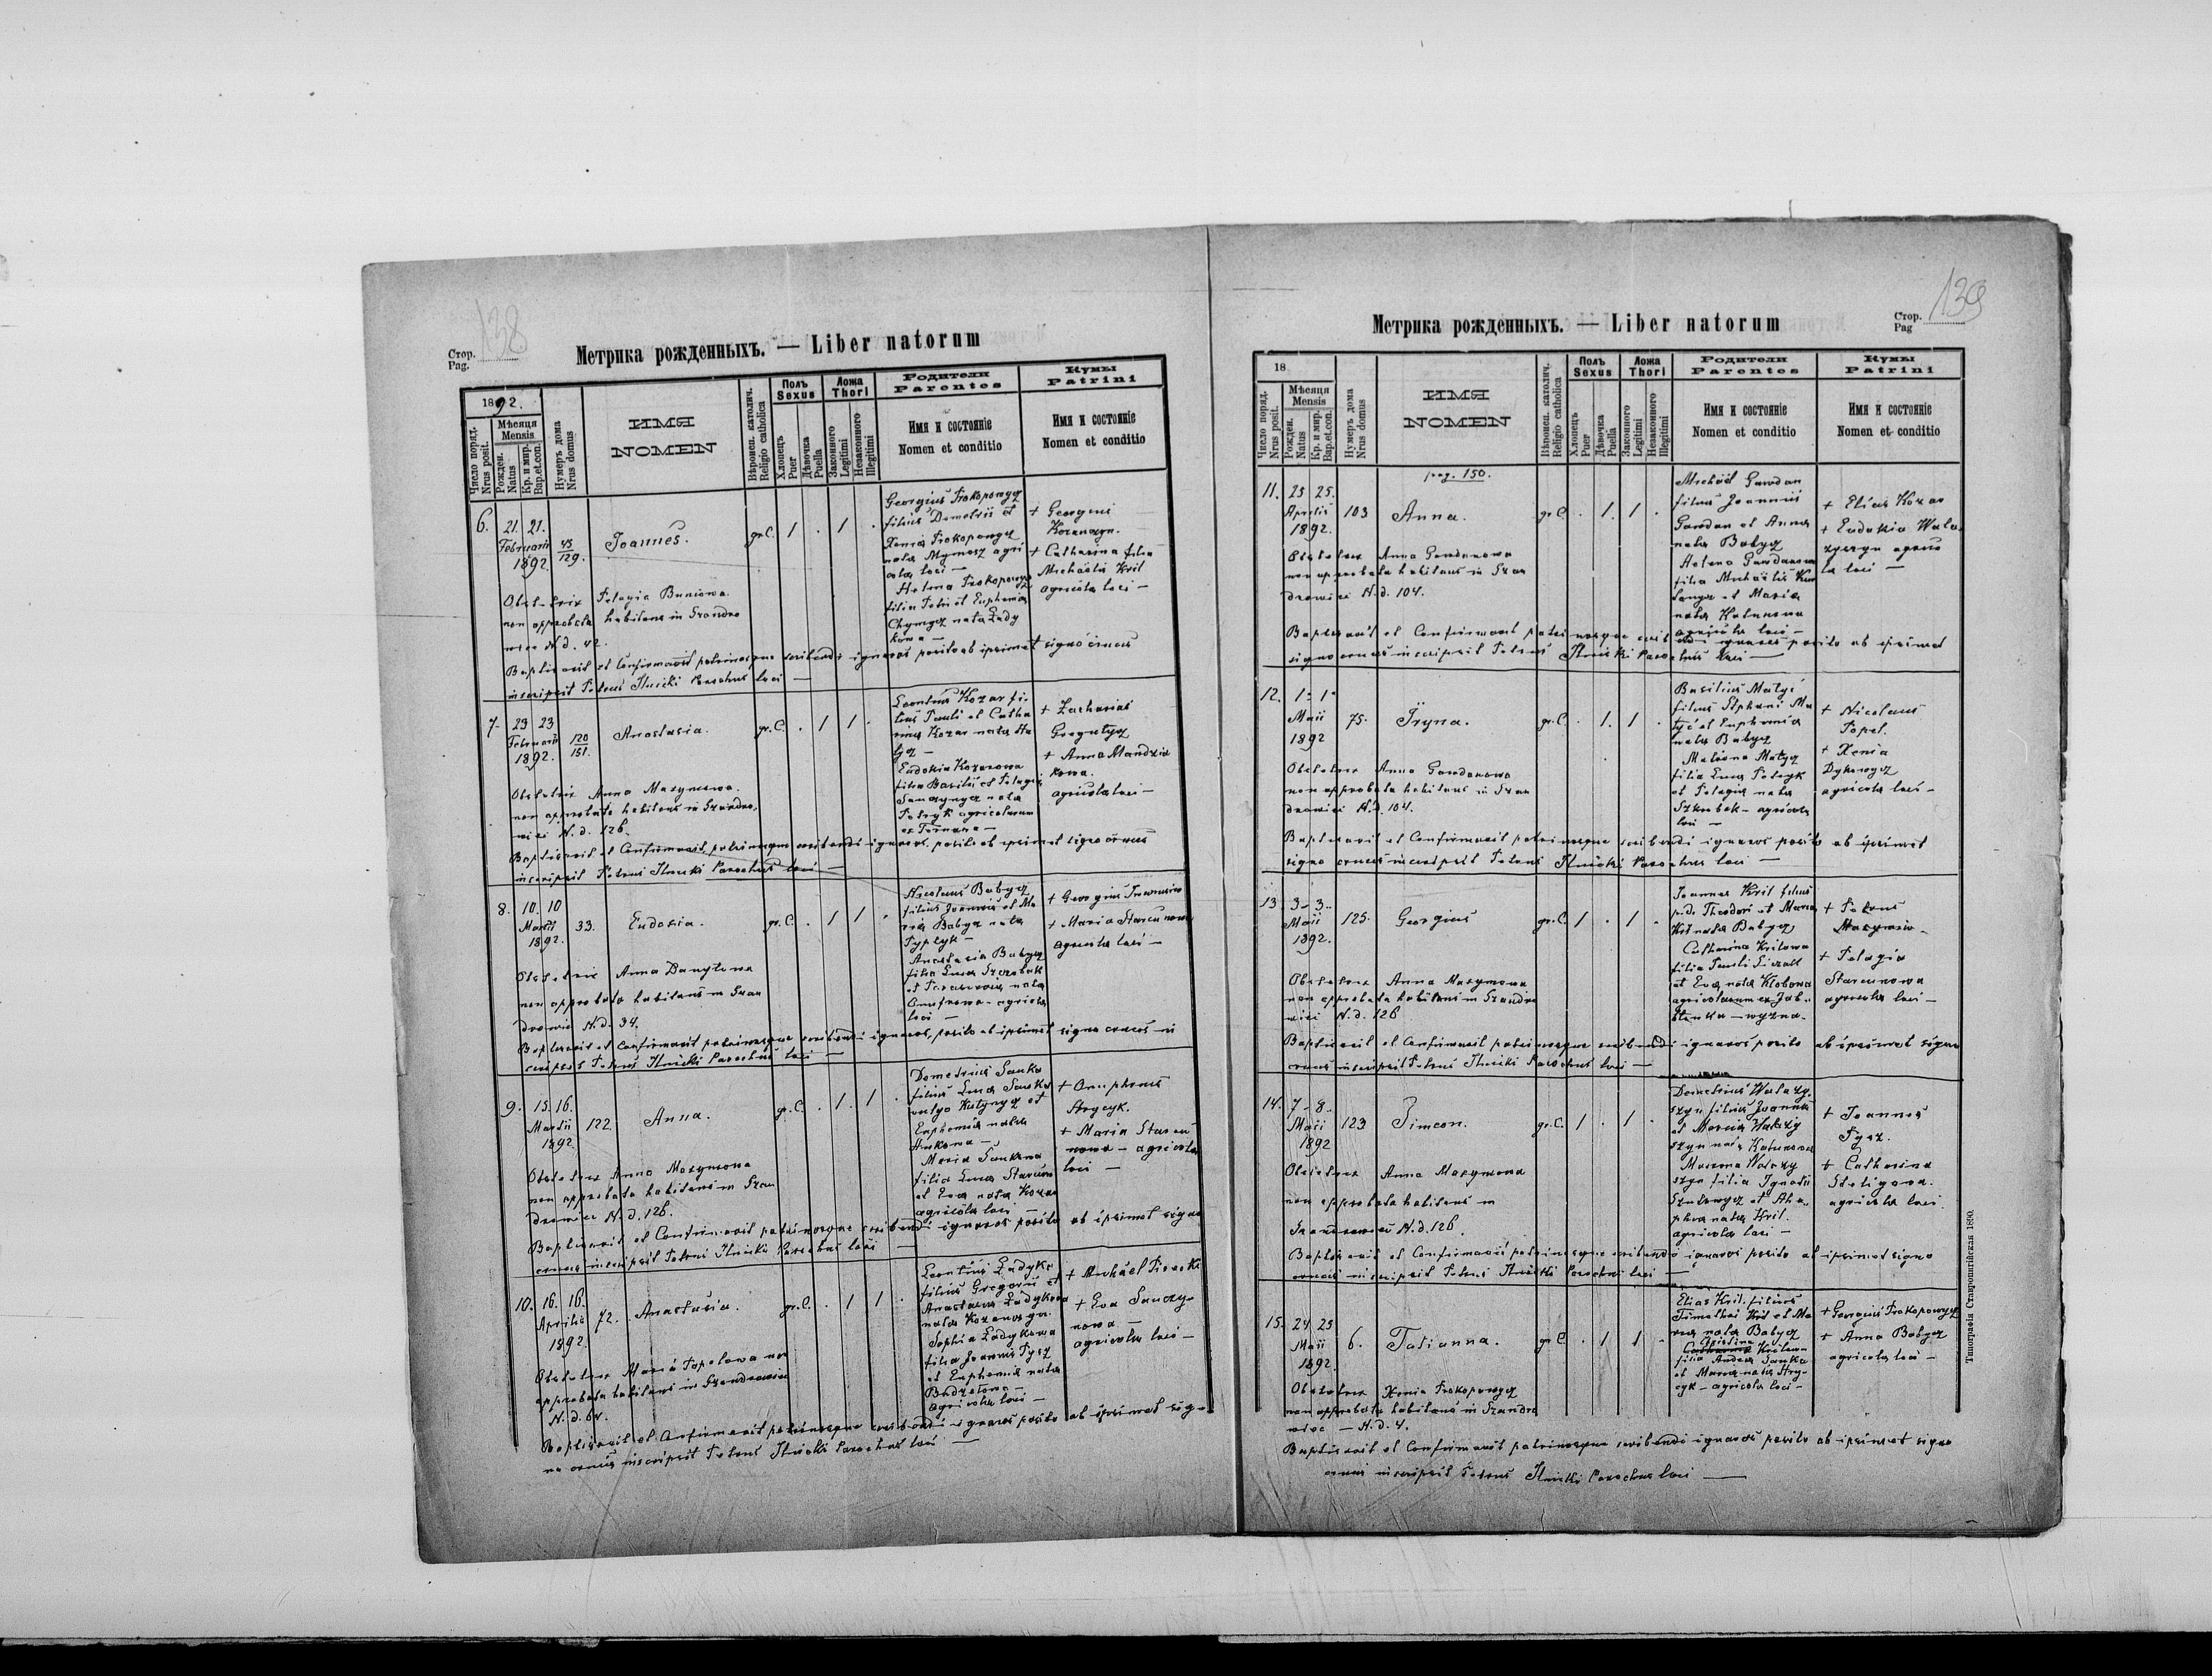 138
Стор.
Pag.
Метрика рожденныхъ. — Liber natorum
1892.
Число поряд.
Nrus posit.
Мѣсяця
Mensis
Рожден.
Natus
Кр. и мир.
Bap. et. con.
Нумеръ дома
Nrus domus
ИМЯ
NOMEN
Вѣроисп. католич.
Religio catholica
Полъ
Sexus
Хлопецъ
Puer
Дѣвочка
Puella
Ложа
Thori
Законного
Legitimi
Незаконного
Illegitimi
Родители
Parentes
Имя и состояніе
Nomen et conditio
Кумы
Patrini
Имя и состояніе
Nomen et conditio
6. 21. 21.
Februarii
1892.
45
129.
Joannes.
gr.C. 1 . 1 .
Georgius Prokopowycz
filius Demetrii et
Xenia Prokopowycz
nata Mymosz agri
colae loci —
Helena Prokopowycz
filia Petri et Euphemia
Chymycz nata Lady
kowa —
+ Georgius
+ Catharina filia
Michaëlis Kril
agricolae loci —
Obstetrix Pelagia Buniowa
non approbata habitans in Szandro
wiec N.d. 42.
Baptisavit et Confirmavit patrinosque scribendi ignaros posito ab ipsimet signo crucis
inscripsit Petrus Ilnicki Parochus loci —
7. 23 23
Februarii
1892.
120
151.
Anastasia.
gr.C. . 1 1 .
Leontius Kozar fi-
lius Pauli et Catha
rina Kozar nata
Eudokia Kozarowa
filia Basilii et Pelagia
nata
Petryk agricolarum
ex Ternawa —
+ Zacharias
+ Anna Mandzia
kowa.
agricolae loci —
Obstetrix Anna Maxymowa
non approbata habitans in Szandro,
wiec N.d. 126.
Baptisavit et Confirmavit patrinosque scribendi ignaros, posito ab ipsimet signo crucis
inscripsit Petrus Ilnicki Parochus loci —
8. 10. 10
Martii
1892.
33.
Eudoxia.
gr.C. . 1 1 .
Nicolaus Babycz
filius Joannis et Ma
ria Babycz nata
Anastasia Babycz
filia Luca
nata
agricolae
loci —
+ Georgius
+ Maria Starunowa
agricolae loci —
Obstetrix Anna Danylowa
non approbata habitans in Szan
drowiec N.d. 34.
Baptisavit et Confirmavit patrinosque scribendi ignaros, posito ab ipsimet signo crucis in
scripsit Petrus Ilnicki Parochus loci —
9. 15. 16.
Martii
1892.
122.
Anna.
gr.C. . 1. 1 .
Demetrius Sanko
filius Luca Sanko
vulgo et
Euphemia nata
Maria Sankowa
filia Luca
et Eva nata Kozar
agricolae loci —
+ Onuphrius
Strycyk.
+ Maria Staru
nowa — agricolae
loci —
Obstetrix Anna Maxymowa
non approbata habitans in Szan
drowiec N.d. 126.
Baptisavit et Confirmavit patrinosque scribendi ignaros posito ab ipsimet signo
crucis inscripsit Petrus Ilnicki Parochus loci —
10. 16. 16.
Aprilis
1892.
72.
Anastasia.
gr.C. . 1 1 .
Leontius Ladyka
filius Gregorii et
Anastasia Ladykowa
nata
Sophia Ladykowa
filia Joannis Tysz
et Euphemia nata
agricolae loci —
+ Michäel
+ Eva Sauczy-
nowa —
agricolae loci —
Obstetrix Maria Popelowa non
approbata habitans in Szandrowiec
N.d. 64.
Baptisavit et Confirmavit patrinosque scribendi ignaros posito ab ipsimet sig-
no crucis inscripsit Petrus Ilnicki Parochus loci —
139
Стор.
Pag
Метрика рожденныхъ. — Liber natorum
18
Число поряд.
Nrus posit.
Мѣсяця
Mensis
Рожден.
Natus
Кр. и мир.
Bap. et. con.
Нумеръ дома
Nrus domus
ИМЯ
NOMEN
Вѣроисп. католич.
Religio catholica
Полъ
Sexus
Хлопецъ
Puer
Дѣвочка
Puella
Ложа
Thori
Законного
Legitimi
Незаконного
Illegitimi
Родители
Parentes
Имя и состояніе
Nomen et conditio
Кумы
Patrini
Имя и состояніе
Nomen et conditio
pag. 150.
11. 25 25.
Aprilis
1892.
103
Anna.
gr.C. . 1. 1 .
Michäel Gawdan
filius Joannis
Gawdan et Anna
nata Babycz
Helena Gawdanowa
filia Michäelis
et Maria
nata
agricolae loci —
+ Elias Kozar
+ Eudokia Wala
zyczyn agrico
lae loci —
Obstetrix Anna Gawdanowa
non approbata habitans in Szan
drowiec N.d. 104.
Baptisavit et Confirmavit patrinosque scribendi ignaros posito ab ipsimet
signo crucis inscripsit Petrus Ilnicki Parochus loci —
12. 1. 1.
Maii
1892
75.
Iryna.
gr.C. . 1. 1 .
Basilius Matyč
filius Stephani Ma
tyč et Euphemia
nata Babycz
Matrona Matycz
filia Luca Petryk
et Pelagia nata
Szkrobek — agricolae
loci —
+ Nicolaus
Popel.
+ Xenia
agricolae loci —
Obstetrix Anna Gawdanowa
non approbata habitans in Szan
drowiec N.d. 104.
Baptisavit et Confirmavit patrinosque scribendi ignaros posito ab ipsimet
signo crucis inscripsit Petrus Ilnicki Parochus loci —
13. 3. 3.
Maii
1892.
125.
Georgius
gr.C. 1 . 1 .
Joannes Kril filius
Theodori et Maria
Kril nata Babycz
Catharina Krilowa
filia Pauli
et Eva nata
agricolarum ex Jab-
+ Petrus
+ Pelagia
Starunowa
agricolae loci —
Obstetrix Anna Maxymowa
non approbata habitans in Szandro
wiec N.d. 126
Baptisavit et Confirmavit patrinosque scribendi ignaros posito ab ipsimet signo
crucis inscripsit Petrus Ilnicki Parochus loci —
14. 7. 8.
Maii
1892
123
Simeon.
gr.C. 1 . 1 .
Demetrius Walazy-
czyn filius Joannis
et Maria Walazy
czyn nata
filia Ignatii
et Aha-
phia nata Kril.
agricolae loci —
+ Joannes
Tysz.
+ Catharina
Steligowa.
agricolae loci
Obstetrix Anna Maxymowa
non approbata habitans in
Szandrowiec N.d. 126.
Baptisavit et Confirmavit patrinosque scribendi ignaros posito ab ipsimet signo
crucis inscripsit Petrus Ilnicki Parochus loci —
15. 24 25
Maii
1892.
6.
Tatianna.
gr.C. . 1 1 .
Elias Kril filius
Timothei Kril et Ma
ria nata Babycz
Christina
Catharina Krilowa
filia Andrea Sanko
et Maria nata Stry-
cyk — agricolae loci —
+ Georgius Prokopowycz
+ Anna Babycz
agricolae loci —
Obstetrix Xenia Prokopowycz
non approbata habitans in Szandro
wiec — N.d. 4.
Baptisavit et Confirmavit patrinosque scribendi ignaros posito ab ipsimet signo
crucis inscripsit Petrus Ilnicki Parochus loci —
Типографія Ставропигійская 1890.